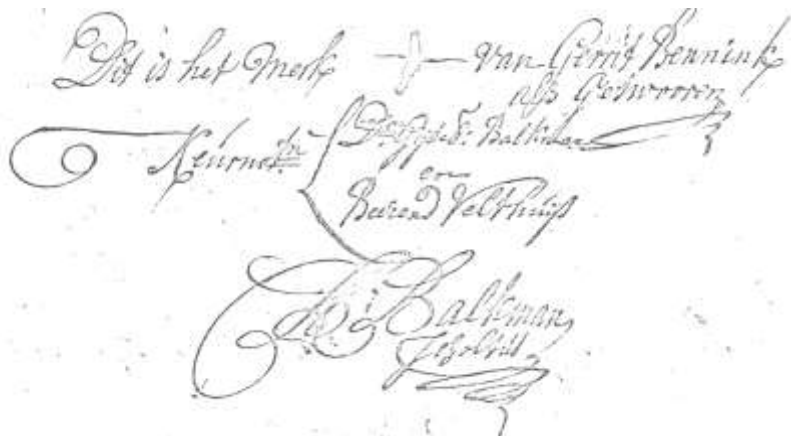 Dit is het Merk van Gerrit Bennink
als Geswooren
Keurnoten Balkman
en
Berend Velthuijs
Balkman
Scholtis